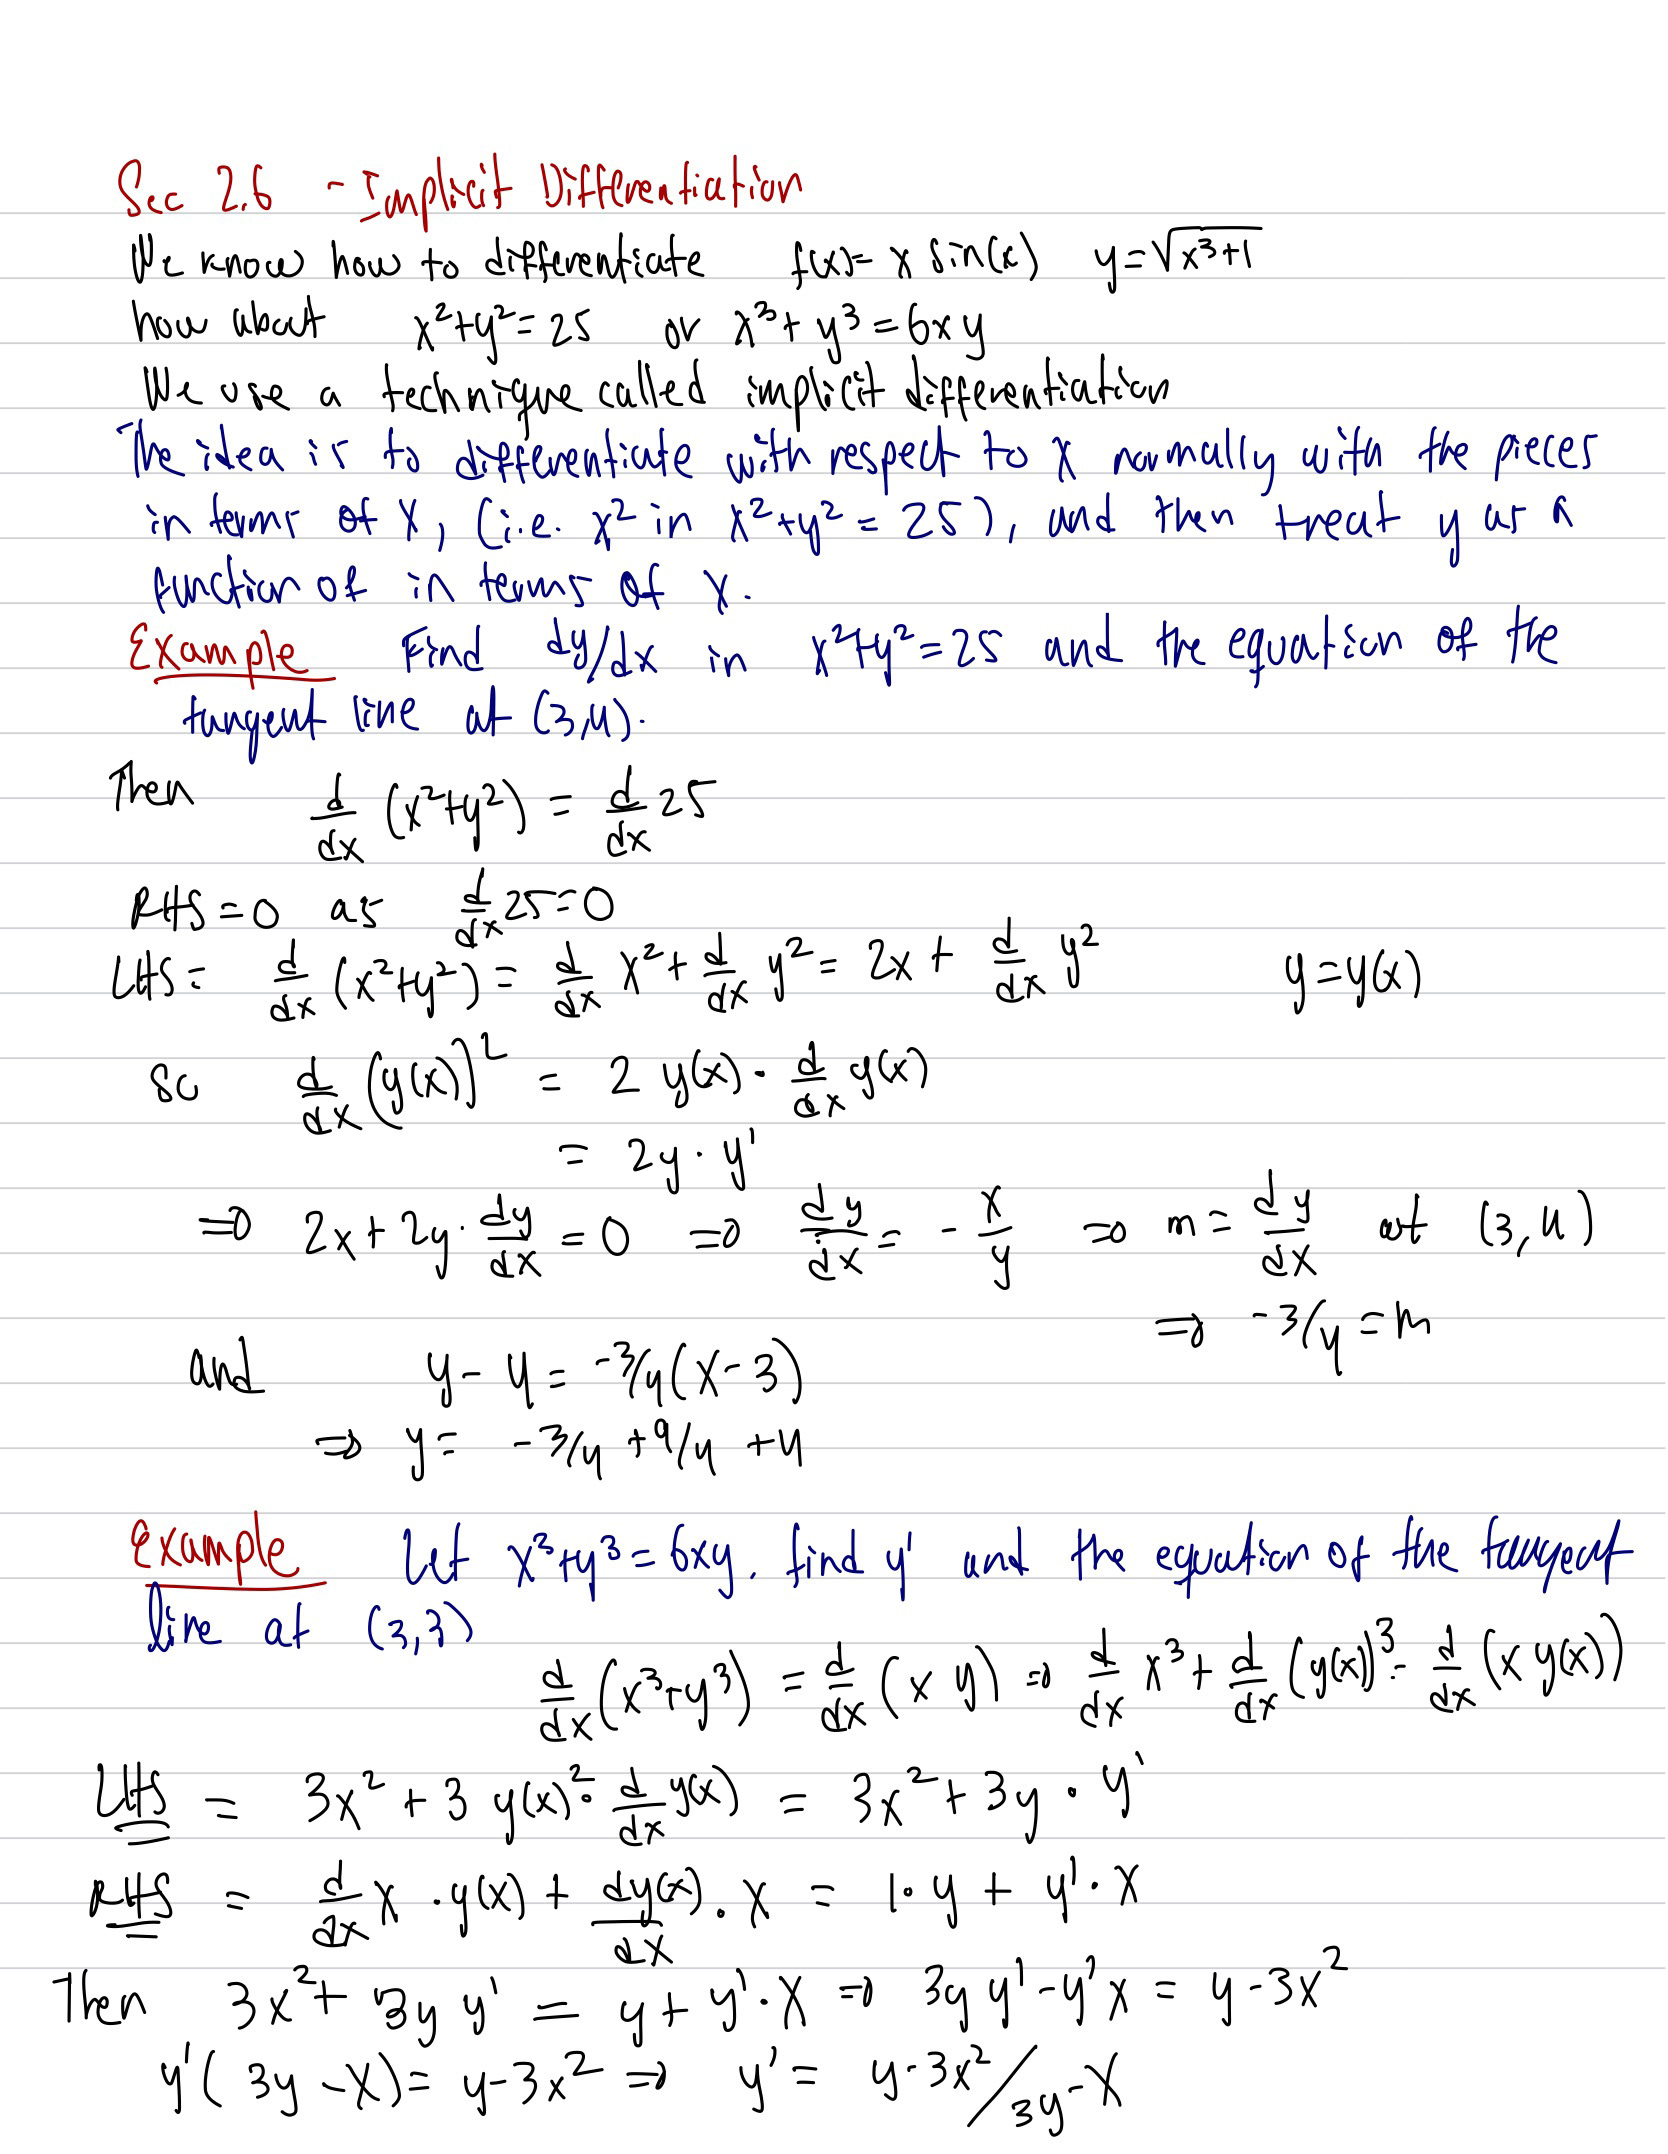 Sec 2.6 - Implicit Differentiation
We know how to differentiate f(x)= x sin(x) y=√(x³+1)
how about x²+y²=25 or x³+y³=6xy
We use a technique called implicit differentiation
The idea is to differentiate with respect to x normally with the pieces
in terms of x, (i.e. x² in x²+y² = 25), and then treat y as a
function of in terms of x.
Example Find dy/dx in x²+y²=25 and the equation of the
tangent line at (3,4).
Then d/dx (x²+y²) = d/dx 25
RHS=0 as d/dx 25=0
LHS= d/dx (x²+y²) = d/dx x² + d/dx y² = 2x + d/dx y² y=y(x)
So d/dx (y(x))² = 2 y(x) · d/dx y(x)
= 2y · y'
⇒ 2x+2y · dy/dx = 0 ⇒ dy/dx = - x/y ⇒ m = dy/dx at (3,4)
⇒ -3/4 = m
and y-4 = -3/4(x-3)
⇒ y= -3/4 +9/4 +4
Example Let x³+y³=6xy. find y' and the equation of the tangent
line at (3,3)
d/dx (x³+y³) = d/dx (x y) ⇒ d/dx x³ + d/dx (y(x))³ = d/dx (x y(x))
LHS = 3x² + 3 y(x)² · d/dx y(x) = 3x² + 3y · y'
RHS = d/dx x · y(x) + dy(x)/dx · x = 1 · y + y' · x
Then 3x² + 3y y' = y + y' · x ⇒ 3y y' - y'x = y-3x²
y'(3y -x) = y-3x² ⇒ y' = y-3x²/3y-x